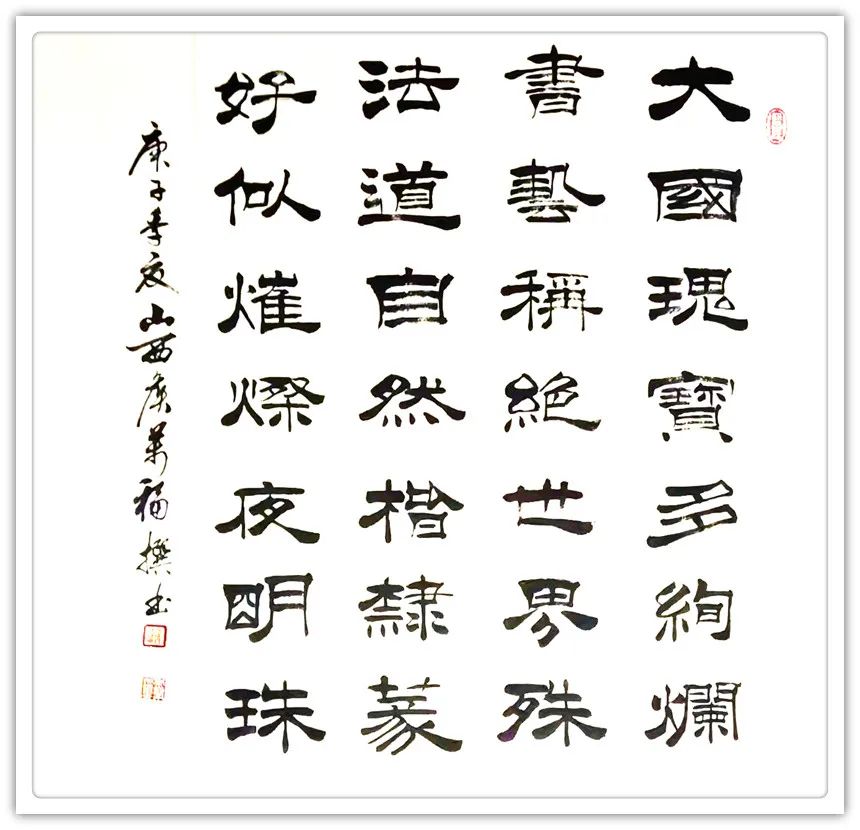 大國瑰寶多絢爛
書藝稱絕世界殊
法道自然楷隸篆
好似熣燦夜明珠
庚子季夏山西侯萬福撰书